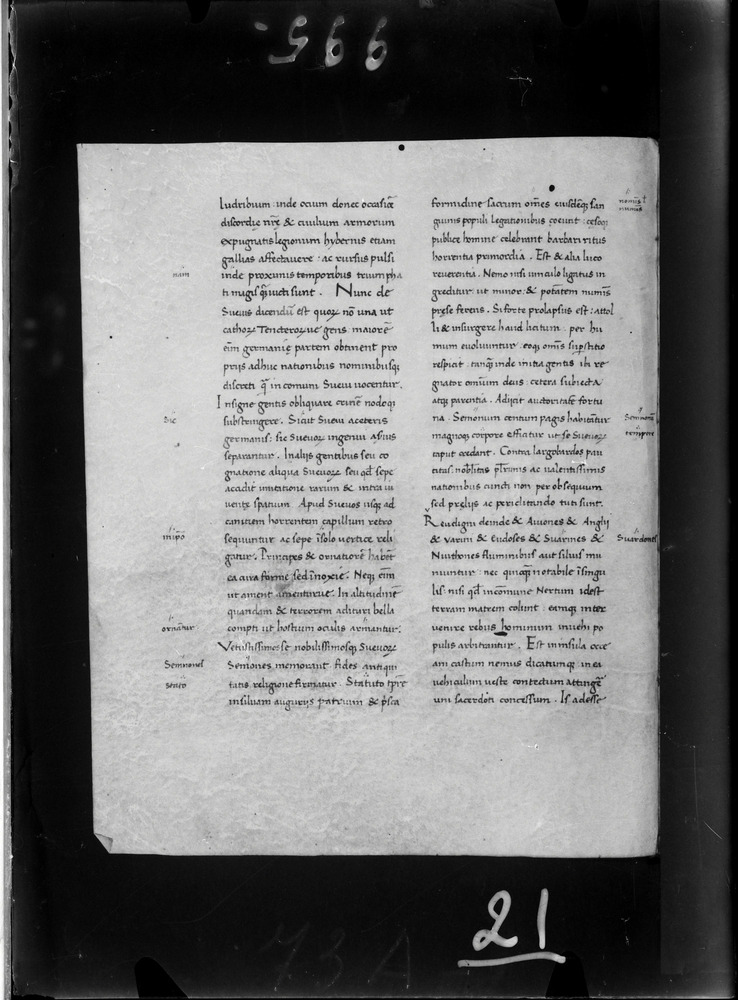 ludribium: inde ocium donec occasiõe
discordię nr̃ę & ciuilium armorum
expugnatis legionum hybernis etiam
gallias affectauere: ac rursus pulsi
inde proxumis temporibus triumpha
ti magis q̃ uicti sunt. Nunc de
Sueuis dicendũ est quoꝝ nõ una ut
cathoꝝ Tencteroꝝue gens maiorẽ
eĩm germanię partem obtinent pro
prijs adhuc nationibus nominibusq;
discreti q̃ in comuni Sueui uocentur.
Insigne gentis obliquare crinẽ nodoq;
substringere. Sicut Sueui aceteris
germanis: sic Sueuoꝝ ingenui aseruis
separantur. In alijs gentibus seu co
gnatione aliqua Sueuoꝝ seu qđ sepe
accidit imitatione rarum & intra iu
uente spatium. Apud Sueuos usq; ad
canitiem horrentem capillum retro
sequuntur ac sepe ĩsolo uertice reli
gatur. Principes & ornatiorẽ habẽt
ea cura formę sed ĩnoxię. Neq; eĩm
ut ament amenturue. In altitudinẽ
quandam & terrorem adituri bella
compti ut hostium oculis armantur.
Vetustissimos se nobilissimosq; Sueuoꝝ
Semones memorant fides antiqui
tatis religione firmatur. Statuto tp̃re
insiluam augurijs patrum & p̃sca
nam
sic
inipõ
ornãtur
Semnones
stato
formidine sacrum omẽs eiusdẽq; san
guinis populi legationibus coeunt: cęsoq;
publice homine celebrant barbari ritus
horrentia primordia. Est & alia luco
reuerentia. Nemo nisi uinculo ligatus in
greditur: ut minor: & potatem numĩs
pręse ferens. Si forte prolapsus est: attol
li & insurgere haud licitum: per hu
mum euoluuntur: eoq; omĩs sup̃stitio
respicit: tanq̃ inde initia gentis ibi re
gnator omnium deus: cetera subiecta
atq; parentia. Adijcit auctoritatẽ fortu
na. Semonum centum pagis habitãtur
magnoq; corpore efficitur ut se Sueuoꝝ
caput credant. Contra largobardos pau
citas nobilitas plrimis ac ualentissimis
nationibus cincti non per obsequium
sed prelijs ac periclitando tuti sunt.
Reudigni deinde & Auiones & Anglij
& Varini & Eudoses & Suarines &
Nuithones fluminibus aut siluis mu
niuntur: nec quicq̃ notabile ĩsingu
lis: nisi qđ incomune Nertum idest
terram matrem colunt: eamq; inter
uenire rebus hominum inuehi po
pulis arbitrantur. Est ininsula ocẽ
ani castum nemus dicatumq; in ea
uehiculum ueste contectum attingẽ
uni sacerdoti concessum. Is adesse
nominis
numinis
Semnonũ
tempore
Suardones
21